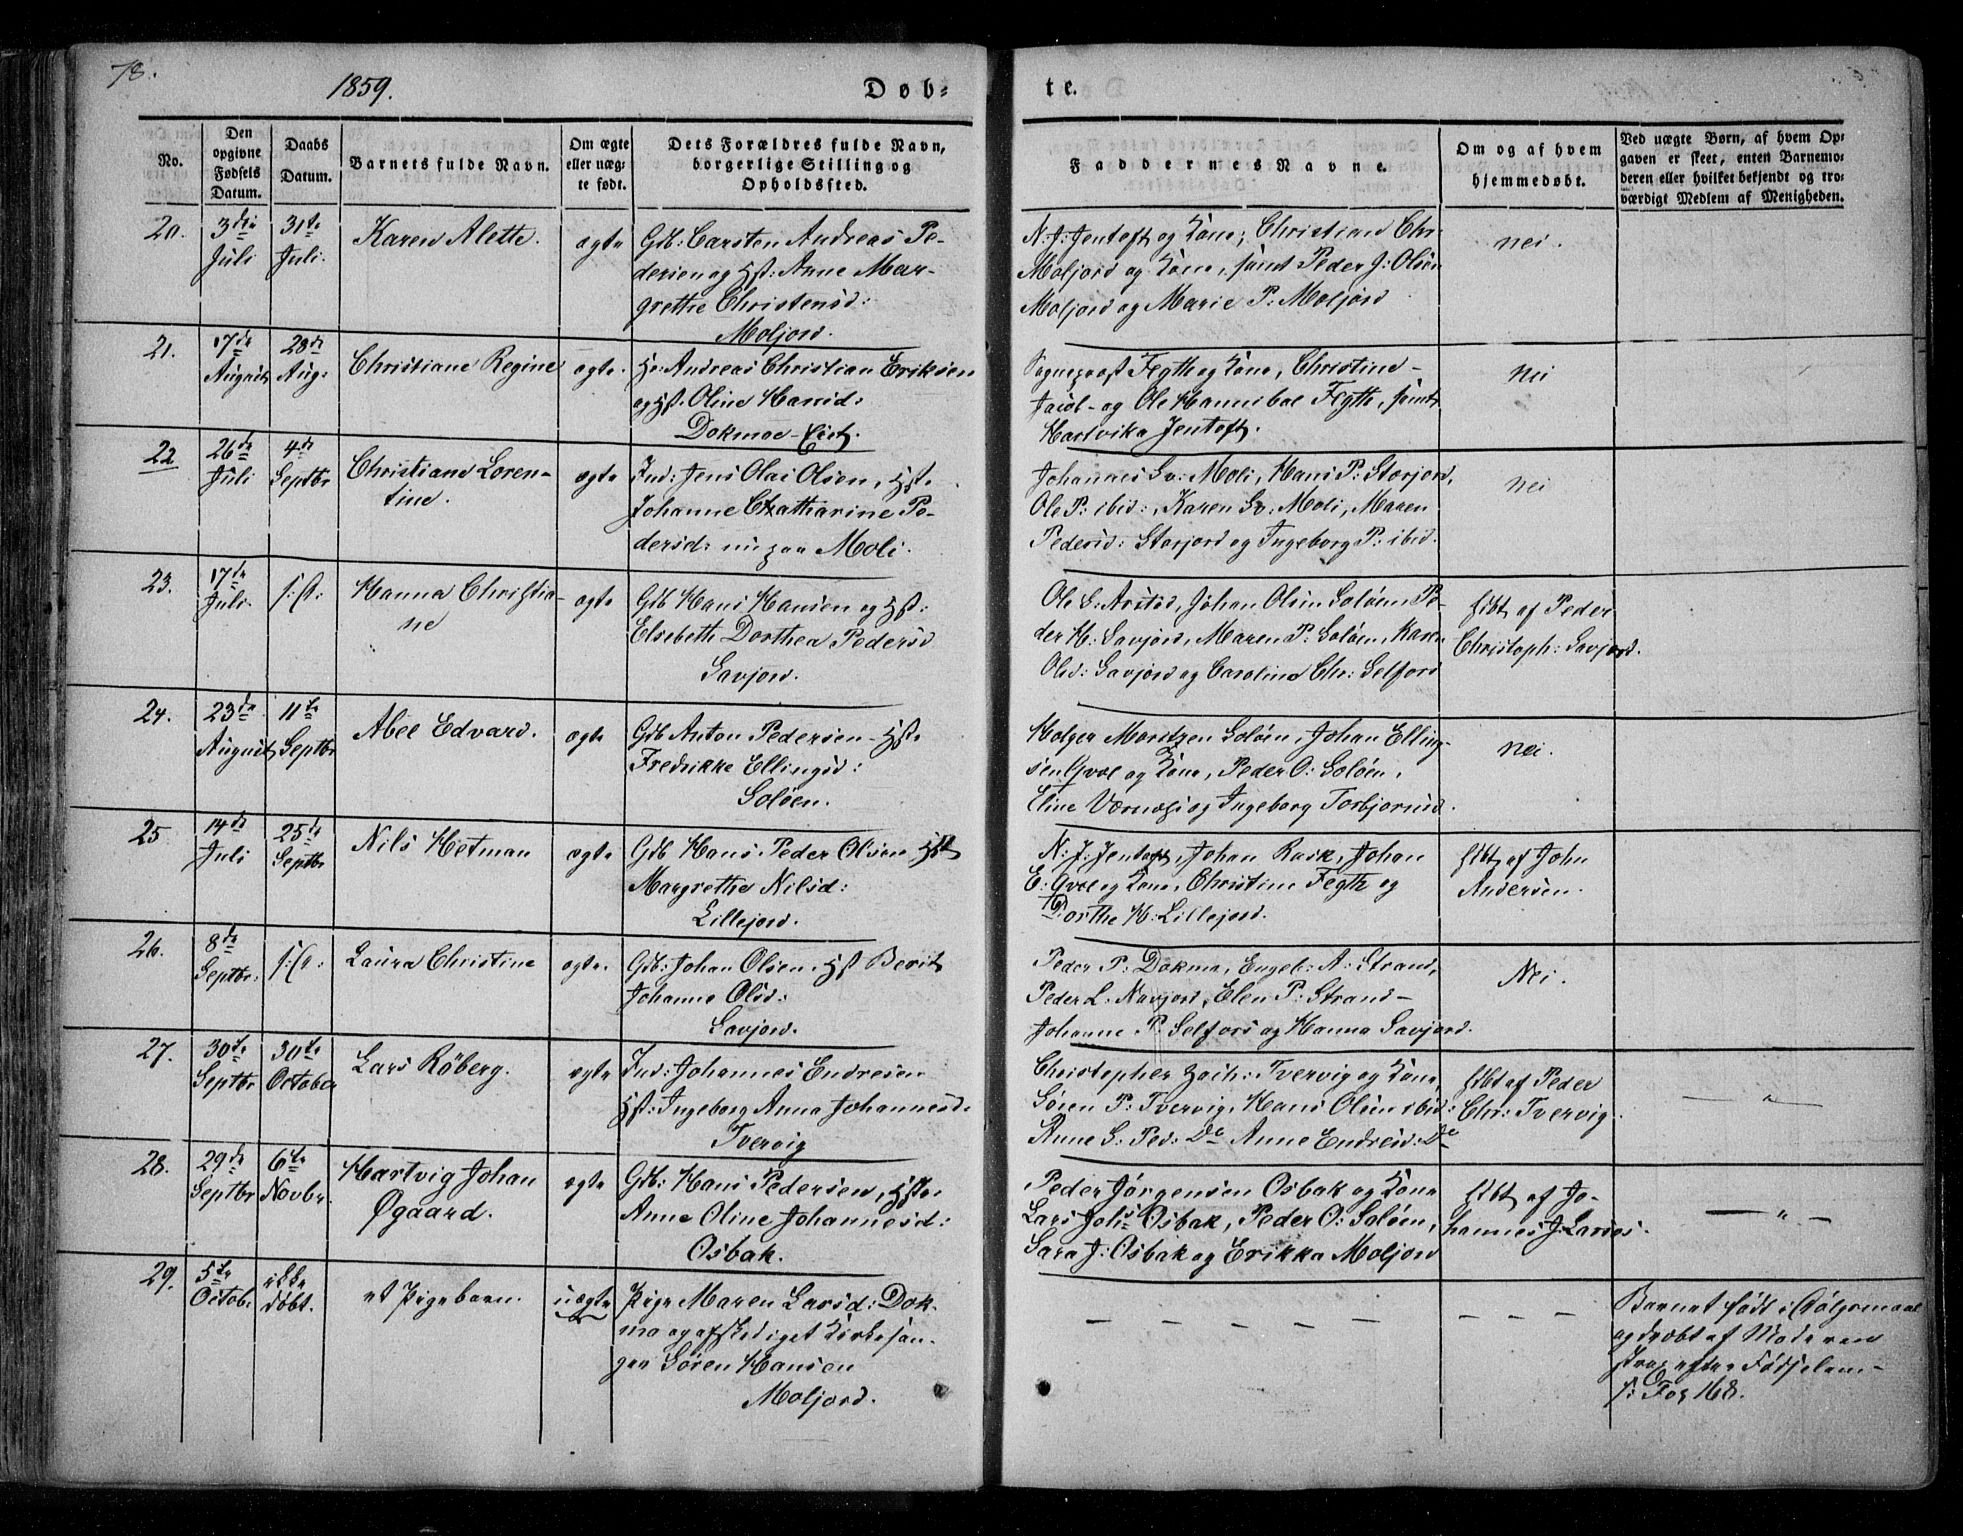 78.
1859.
Døb-
te.
No.
Den opgivne Fødsels Datum.
Daabs Datum.
Barnets fulde Navn.
Om ægte eller uægte født.
Dets Forældres fulde Navn, borgerlige Stilling og Opholdssted.
Faddernes Navne.
Om og af hvem hjemmedøbt.
Ved uægte Børn, af hvem Opgaven er skeet, enten Barnemoderen eller hvilket bekjendt og troværdigt Medlem af Menigheden.
20. 3die Juli 31te Juli. Karen Alette. ægte
Gdb: Carsten Andreas Pe-
dersen og Hst: Anne Mar-
grethe Christensd:
Moljord.
N: J: Jentoft og Kone, Christian Chr:
Moljord og Kone, samt Peder J: Olsen
Moljord og Marie P: Moljord
nei.
21. 17de August 28de Aug: Christiane Regine ægte.
Andreas Christian Eriksen
og Hst: Oline Hansd:
Dokmoe-Eiet.
Sognepræst Fegth og Kone, Christine-
og Ole Hannibal Fegth, samt
Hartvika Jentoft.
nei
22 26de Juli 4de Septbr Christiane Loren-
tine. ægte
Ind: Jens Olai Olsen, Hst.
Johanne Chatharine Pe-
dersd: nu paa Moli.
Johannes Sv: Moli, Hans P: Storjord,
Ole P: ibid:, Karen Sv: Moli, Maren
Pedersd: Storjord og Ingeborg P: ibid.
nei
23. 17de Juli. Hanna Christia-
ne ægte
Gdb Hans Hansen og Hst:
Elsebeth Dorthea Pedersd
Savjord.
Ole S: Arstad, Johan Olsen Soløen, Pe-
der H: Savjord, Maren P: Soløen, Karen
Olsd: Savjord og Caroline Chr: Selfors
hdbt af Peder
Christoph: Savjord.
24. 23de August 11te Septbr Abel Edvard. ægte
Gdb Anton Pedersen - Hst.
Fredrikke Ellingsd:
Soløen.
Holger Moritzen Soløen, Johan Elling-
sen Qval og Kone, Peder O: Soløen,
Eline Værnæs og Ingeborg Torbjørnsd.
nei.
25 14de Juli 25de Septbr Nils Hetman ægte
Gdb Hans Peder Olsen Hst
Margrethe Nilsd:
Lillejord.
N: J: Jentoft, Johan Rask, Johan
E: Qval og Kone, Christine Fegth og
Dorthe H: Lillejord.
hdbt af John
Andersen.
26. 8de Septbr. Laura Christine ægte.
Gdb: Johan Olsen. Hst Berit
Johanne Olsd:
Savjord.
Peder P: Dokmo, Engeb: A: Strand,
Peder L: Navjord, Elen P: Strand-
Johanne P. Selfors og Hanna Savjord.
Nei.
27. 30te Septbr 30te October Lars Röberg. ægte
Ind: Johannes Endresen
Hst: Ingeborg Anna Johannesd.
Tvervig
Christopher Zach: Tvervig og Kone,
Sören P: Tvervig, Hans Olsen ibid:
Anne S: Ped: Do Anne Endresd: Do
hdbt af Peder
Chr: Tvervig.
— " —
28. 29de Septbr 6te Novbr. Hartvig Johan
Øgaard. ægte
Gdb: Hans Pedersen, Hst.
Anne Oline Johannesd:
Osbak.
Peder Jørgensen Osbak og Kone
Lars Johs Osbak, Peder O: Soløen,
Sara J: Osbak og Erikka Moljord
hdbt af Jo-
hannes J. Larses.
— " —
29. 5te Octob: ikke døbt. et Pigebarn. uægte
Pige Maren Larsd: Dok-
mo og afskediget Kirkesan-
ger Sören Hansen
Moljord.
— — — — — —
— — —
Barnet født i Dølgsmaal
og dræbt af Moderen
strax efter Fødselen-
s: Fol 168.